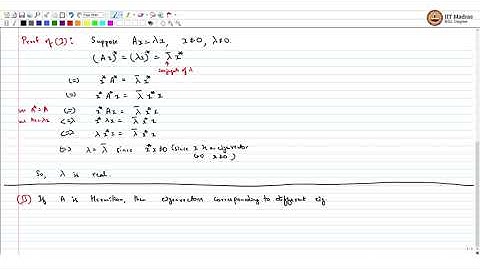 IIT Madras
BSc Degree
Proof of (I): Suppose Ax = λx, x ≠ 0, λ ≠ 0.
(Ax)* = (λx)* = λ̄ x*
conjugate of λ
(=) x* A* = λ̄ x*
(=) x* A* x = λ̄ x* x
use A* = A (=) x* A x = λ̄ x* x
use Ax = λx <=> x* λx = λ̄ x* x
<=> λ x* x = λ̄ x* x
<=> λ = λ̄ since x*x ≠ 0 (since x is an eigenvector
so x ≠ 0)
So, λ is real.
(II) If A is Hermitian, then eigenvectors corresponding to different eig